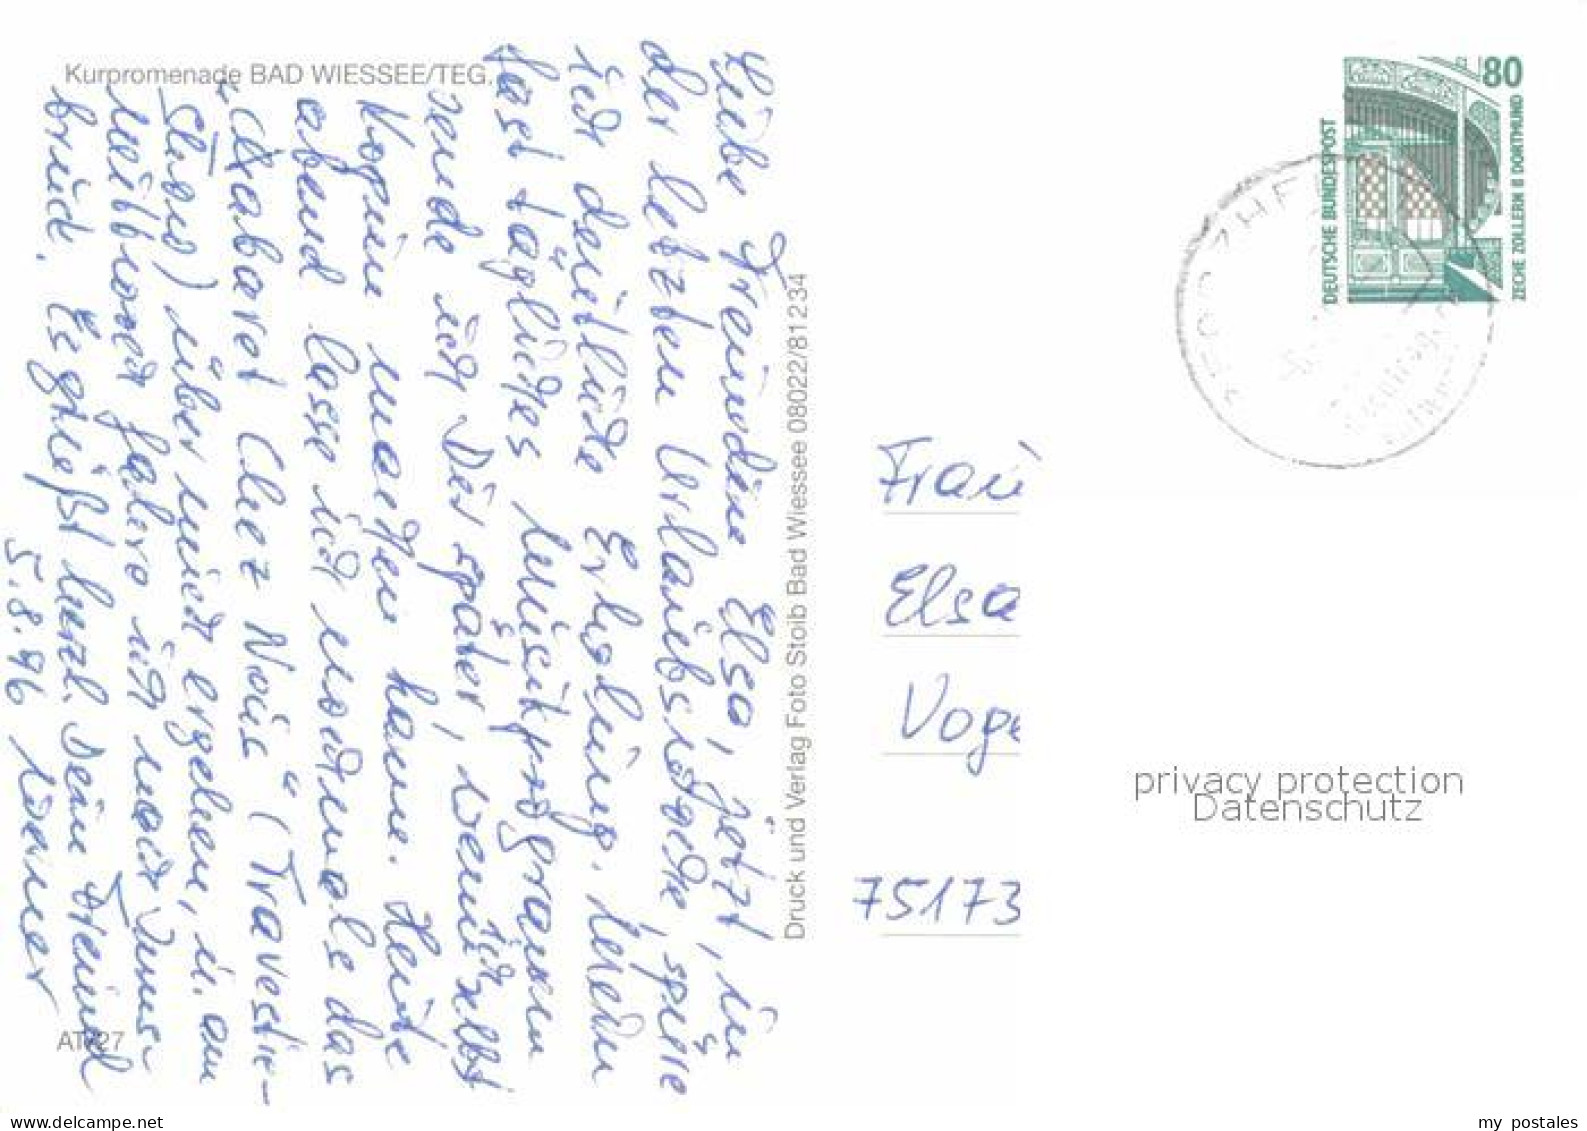 Kurpromenade BAD WIESSEE/TEG.
Liebe Freundin Elsa, jetzt, in
der letzten Urlaubswoche, spüre
ich deutliche Erholung. Mein
fast tägliches Musikprogramm
sende ich Dir später, wenn ich selbst
Kopien machen kann. Heute
abend lasse ich nochmals das
"Cabaret Chez Nous" (Travestie-
Show) über mich ergehen, u. am
Mittwoch fahre ich nach Inns-
bruck. Es grüßt herzl. Dein Freund
5.8.96
AT 27
Druck und Verlag Foto Stoib Bad Wiessee 08022/81234
80
DEUTSCHE BUNDESPOST
ZECHE ZOLLERN II DORTMUND
Frau
Elsa
Voge
75173
privacy protection
Datenschutz
my postales